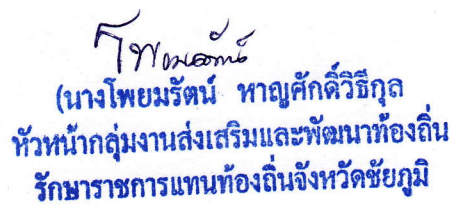 โพยมรัตน์
(นางโพยมรัตน์ หาญศักดิ์วิธีกุล
หัวหน้ากลุ่มงานส่งเสริมและพัฒนาท้องถิ่น
รักษาราชการแทนท้องถิ่นจังหวัดชัยภูมิ